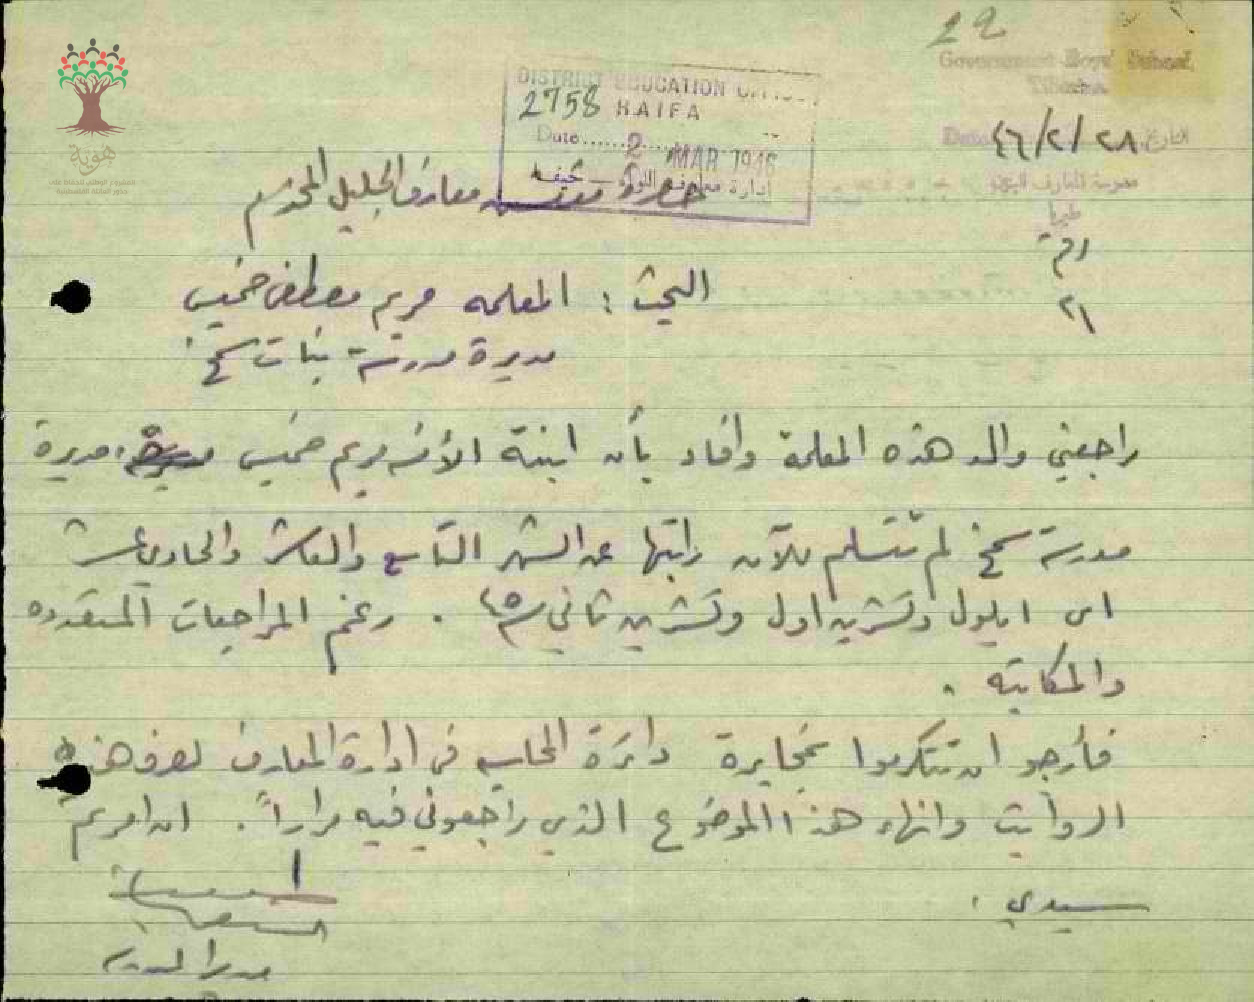 22
Government Boys' School,
Tiberias
DISTRICT EDUCATION OFFICE
2758 HAIFA
Date ...... 2 MAR 1946
التاريخ ٤٦/٢/٢٨ Date
إدارة معارف اللواء — حيفا
طبريا
هوية
حضرة مفتش معارف الجليل المحترم
رقم
٢١
البحث : المعلمه مريم مصطفى خميس
مديرة مدرسة بنات سمخ
راجعني والد هذه المعلمة وأفاد بأن ابنته الآنسه مريم خميس مديرة
مدرسة سمخ لم تتسلم للآن راتبها عن الشهر التاسع والعاشر والحادي عشر
اي ايلول وتشرين اول وتشرين ثاني سنة ٤٥ . رغم المراجعات المتعدده
والمكاتبه .
فأرجو ان تتكرموا بمخابرة دائرة الحساب في ادارة المعارف لصرف هذه
الرواتب وانهاء هذا الموضوع الذي راجعوني فيه مراراً .
سيدي .
مدير المدرسه